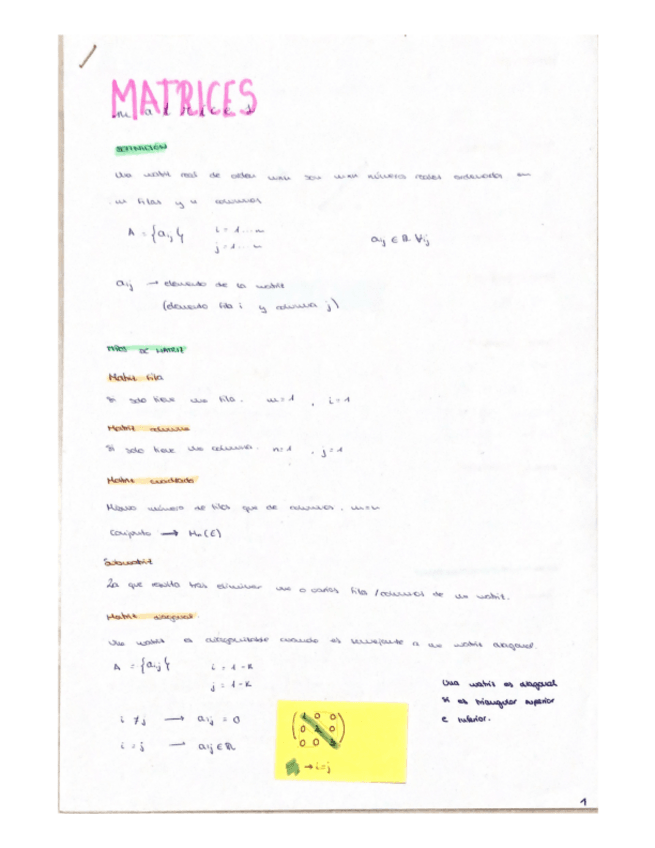 MATRICES
matrices
DEFINICIÓN
Una matriz real de orden mxn son mxn números reales ordenados en
m filas y n columnas
A = {aij} i = 1...m
j = 1...n
aij ∈ ℝ ∀ij
aij → elemento de la matriz
(elemento fila i y columna j)
TIPOS DE MATRIZ
Matriz fila
Si solo tiene una fila. m=1 , i=1
Matriz columna
Si solo tiene una columna. n=1 , j=1
Matriz cuadrada
Mismo número de filas que de columnas. m=n
Conjunto → Mn(E)
Submatriz
La que resulta tras eliminar una o varias fila/columnas de una matriz.
Matriz diagonal.
Una matriz es diagonalizable cuando es semejante a una matriz diagonal.
A = {aij} i = 1-K
j = 1-K
Una matriz es diagonal
si es triangular superior
e inferior.
i ≠ j → aij = 0
i = j → aij ∈ ℝ
1 0 0
0 2 0
0 0 3
→ i=j
1